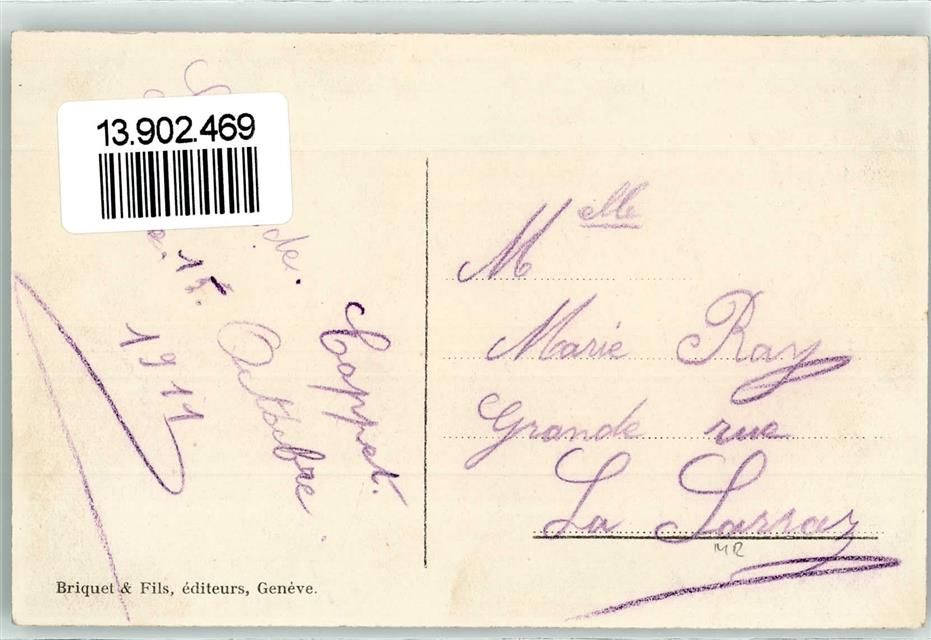 13.902.469
de Coppet.
17. Octobre
1911
Melle
M
Marie Ray
Grande rue
La Sarraz
MR
Briquet & Fils, éditeurs, Genève.